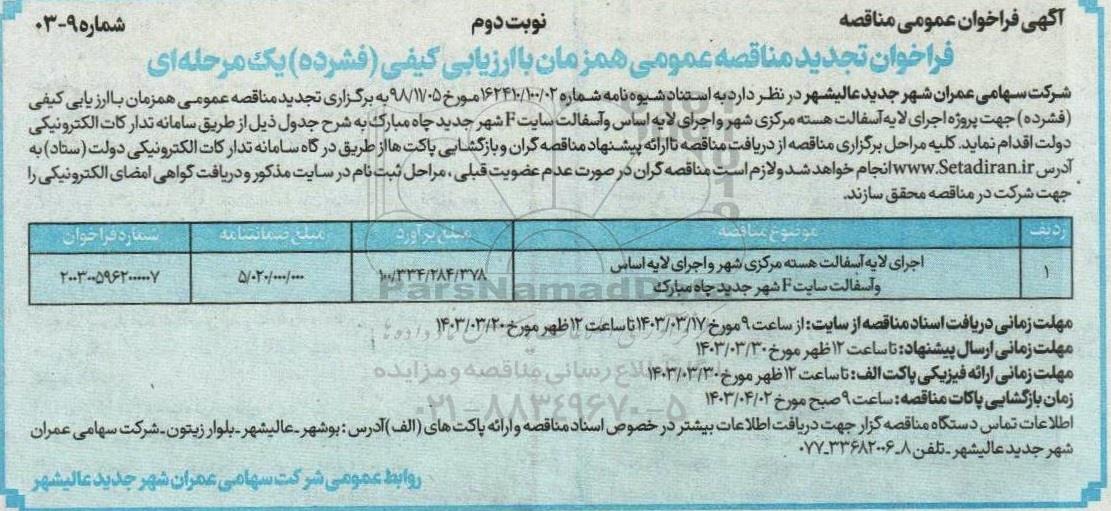 آگهی فراخوان عمومی مناقصه
نوبت دوم
شماره ۹-۰۳
فراخوان تجدید مناقصه عمومی همزمان با ارزیابی کیفی (فشرده) یک مرحله‌ای
شرکت سهامی عمران شهر جدید عالیشهر در نظر دارد به استناد شیوه نامه شماره ۱۶۲۴۱۰/۱۰۰/۰۲ مورخ ۹۸/۱۱/۰۵ به برگزاری تجدید مناقصه عمومی همزمان با ارزیابی کیفی
(فشرده) جهت پروژه اجرای لایه آسفالت هسته مرکزی شهر و اجرای لایه اساس و آسفالت سایت F شهر جدید چاه مبارک به شرح جدول ذیل از طریق سامانه تدارکات الکترونیکی
دولت اقدام نماید. کلیه مراحل برگزاری مناقصه از دریافت مناقصه تا ارائه پیشنهاد مناقصه گران و بازگشایی پاکت ها از طریق درگاه سامانه تدارکات الکترونیکی دولت (ستاد) به
آدرس www.Setadiran.ir انجام خواهد شد و لازم است مناقصه گران در صورت عدم عضویت قبلی، مراحل ثبت نام در سایت مذکور و دریافت گواهی امضای الکترونیکی را
جهت شرکت در مناقصه محقق سازند.
ردیف موضوع مناقصه مبلغ برآورد مبلغ ضمانتنامه شماره فراخوان
۱ اجرای لایه آسفالت هسته مرکزی شهر و اجرای لایه اساس
و آسفالت سایت F شهر جدید چاه مبارک ۱۰۰/۳۳۴/۲۸۴/۳۷۸ ۵/۰۲۰/۰۰۰/۰۰۰ ۲۰۰۳۰۰۵۹۶۲۰۰۰۰۰۷
مهلت زمانی دریافت اسناد مناقصه از سایت: از ساعت ۹ مورخ ۱۴۰۳/۰۳/۱۷ تا ساعت ۱۲ ظهر مورخ ۱۴۰۳/۰۳/۲۰
مهلت زمانی ارسال پیشنهاد: تا ساعت ۱۲ ظهر مورخ ۱۴۰۳/۰۳/۳۰
مهلت زمانی ارائه فیزیکی پاکت الف: تا ساعت ۱۲ ظهر مورخ ۱۴۰۳/۰۳/۳۰
زمان بازگشایی پاکات مناقصه: ساعت ۹ صبح مورخ ۱۴۰۳/۰۴/۰۲
اطلاعات تماس دستگاه مناقصه گزار جهت دریافت اطلاعات بیشتر در خصوص اسناد مناقصه و ارائه پاکت های (الف) آدرس: بوشهر ـ عالیشهر ـ بلوار زیتون ـ شرکت سهامی عمران
شهر جدید عالیشهر ـ تلفن ۸ـ۳۳۶۸۲۰۰۶ـ۰۷۷
روابط عمومی شرکت سهامی عمران شهر جدید عالیشهر
ParsNamadData
اطلاع رسانی مناقصه و مزایده
۰۲۱-۸۸۳۴۹۶۷۰-۵